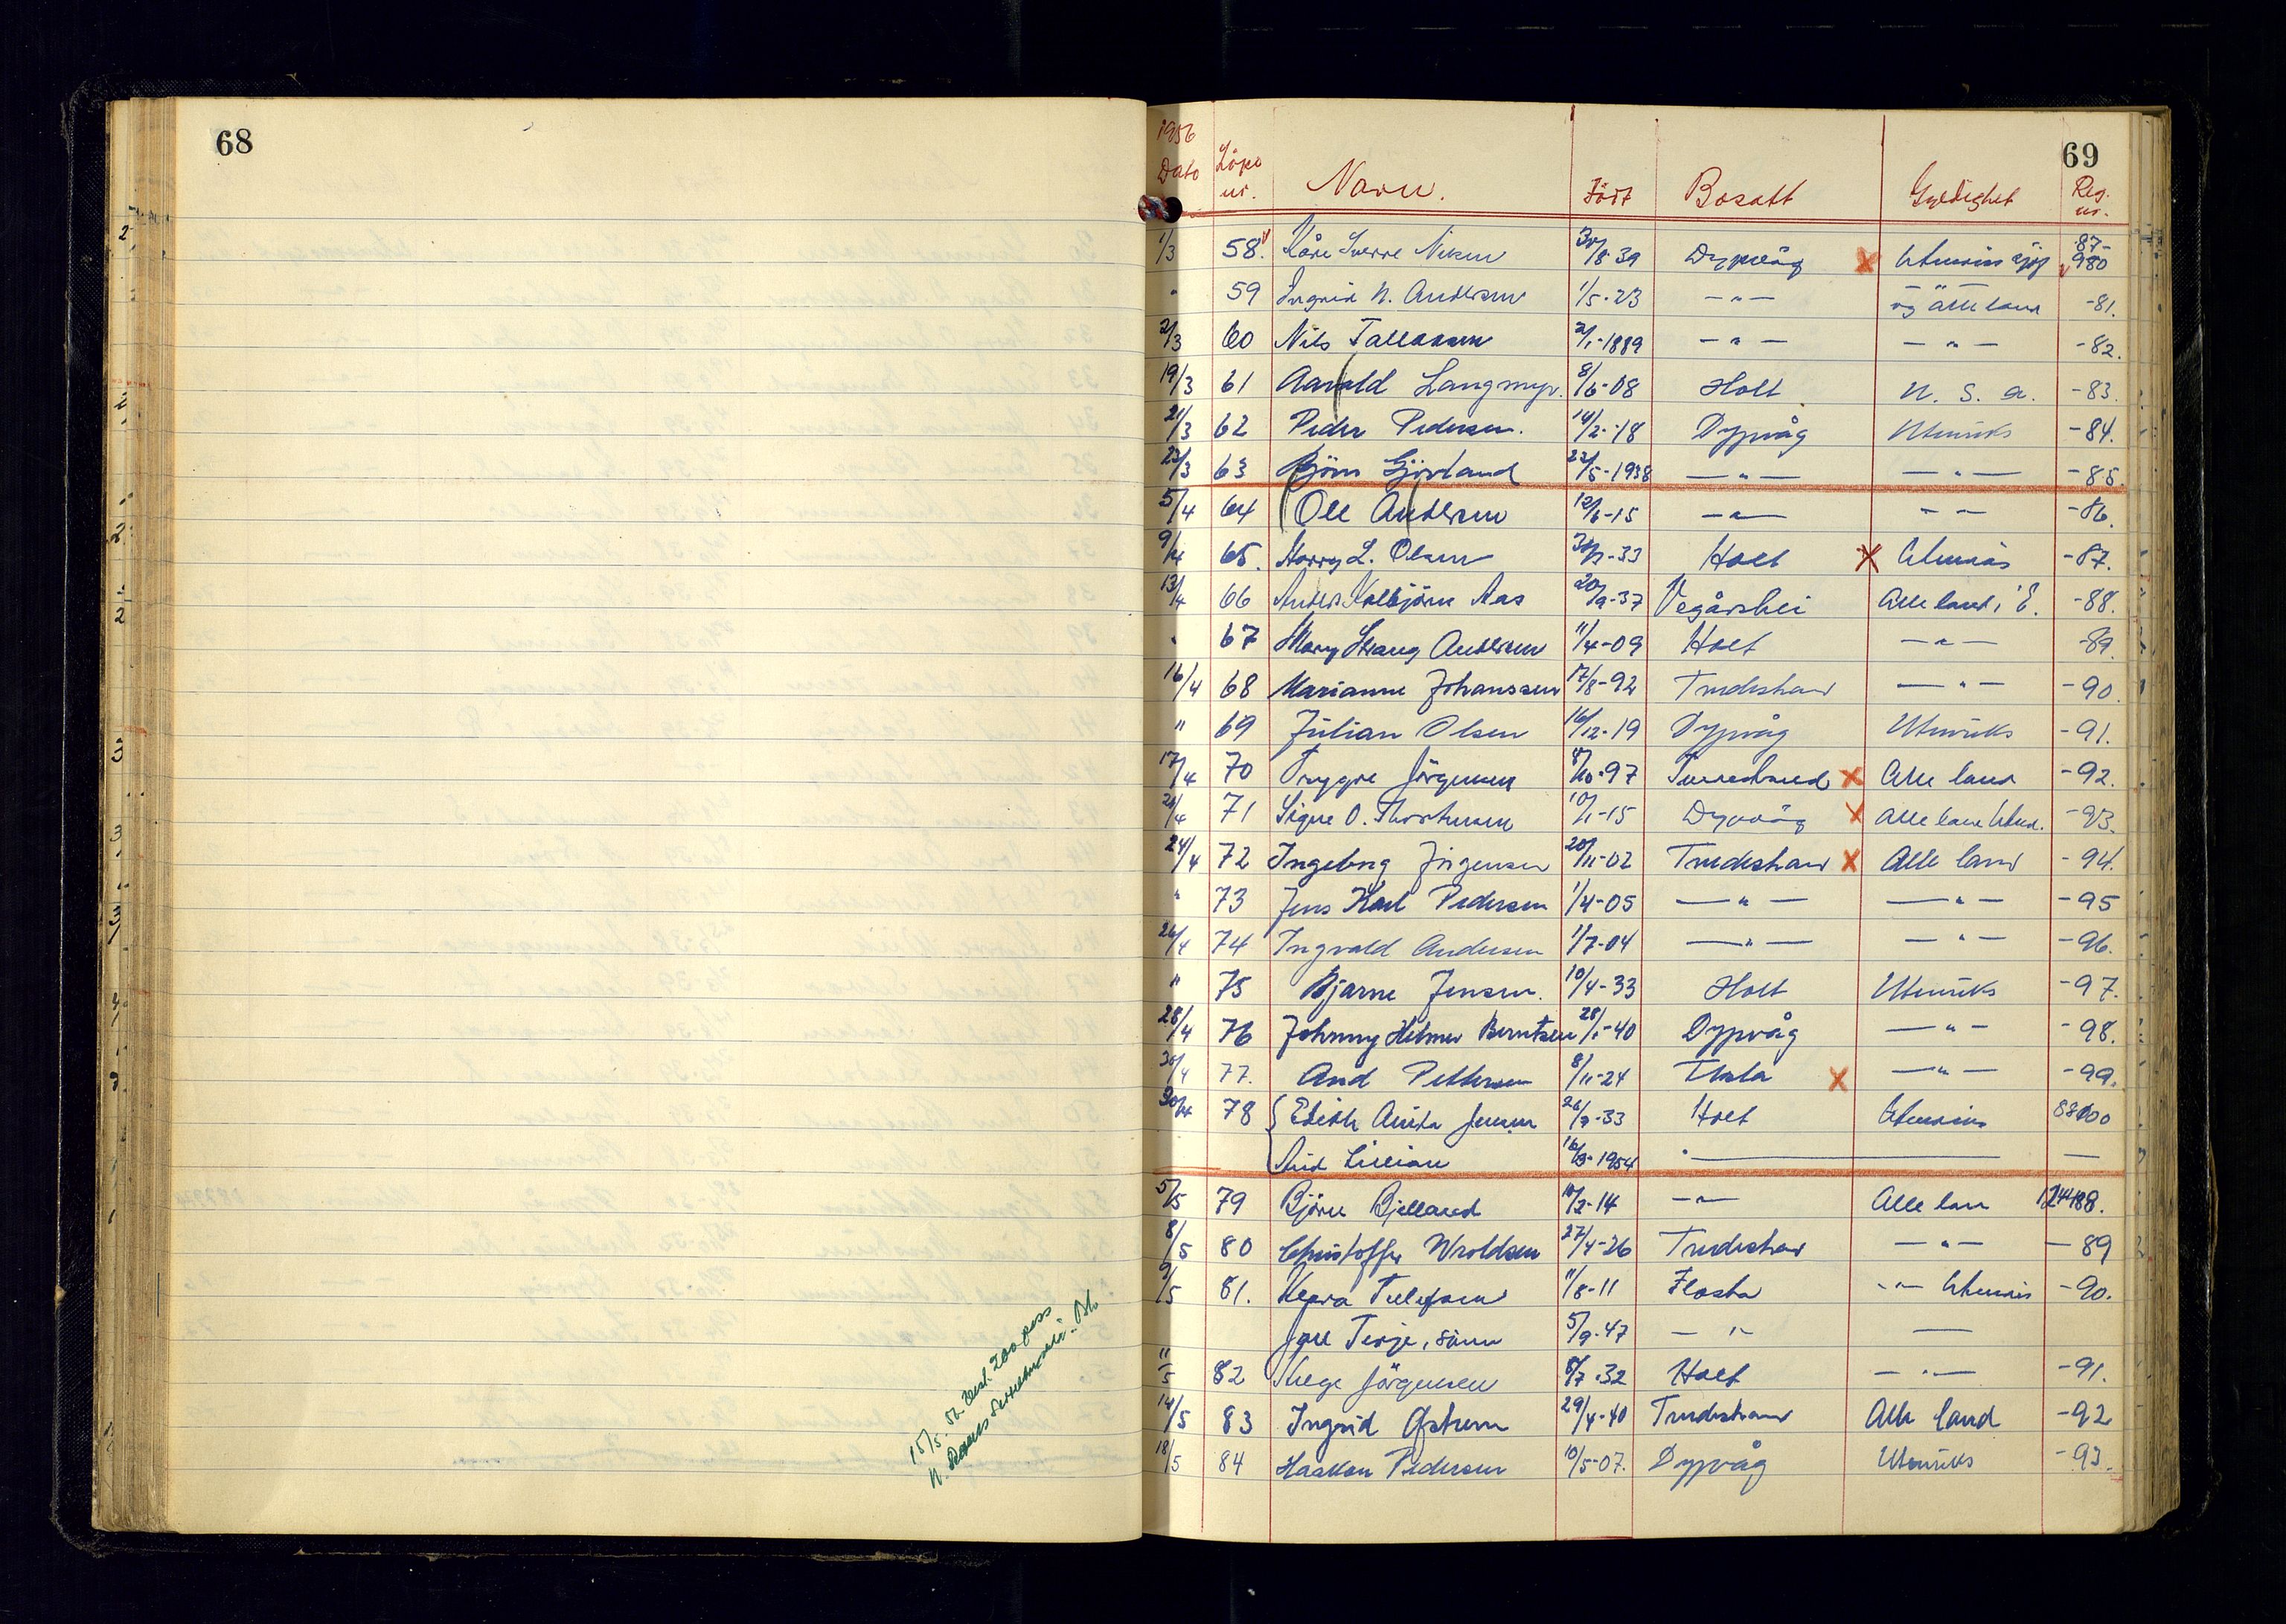 68
15/5. 56. Best. 200 pass
1956
69
Dato Löpe nr. Navn. Född Bosatt Gyldighet Reg. nr.
1/3 58. Kåre Sverre Nilsen 30/8-39 Dypvåg X Utenriks sjøf 87-980
" 59 Ingrid N. Andersen 1/5-23 — " — og alle land -81.
2/3 60 Nils Tallaksen 2/1-1889 — " — — " — -82.
19/3 61 Aavald Langmyr. 8/6-08 Holt U. S. A. -83.
21/3 62 Peder Pedersen. 14/2-18 Dypvåg Utenriks -84.
23/3 63 Björn Gjövland 22/5-1938 — " — — " — -85.
5/4 64 Ole Andersen 12/6-15 — " — — — -86.
9/4 65. Harry L. Olsen 30/7-33 Holt X Utenriks -87.
13/4 66 Anders Kolbjörn Aas 20/9-37 Vegårshei Alle land i E. -88.
" 67 Mary Strang Andersen 11/4-09 Holt — " — -89.
16/4 68 Marianne Johanssen 17/8-92 Tvedestrand — " — -90.
" 69 Julian Olsen 16/12-19 Dypvåg Utenriks -91.
17/4 70 Trygve Jörgensen 8/10-97 Tvedestrand X Alle land -92.
71 Signe O. Thorstensen 10/1-15 Dypvåg X Alle land -93.
24/4 72 Ingeborg Jörgensen 20/11-02 Tvedestrand X Alle land -94.
" 73 Jens Karl Pedersen 1/4-05 — " — — " — -95
26/4 74 Ingvald Andersen 1/7-04 — " — — " — -96.
" 75 Bjarne Jensen. 10/4-33 Holt Utenriks -97.
28/4 76 Johnny Helmer Berntsen 28/1-40 Dypvåg — " — -98.
30/4 77. And Pettersen 8/11-24 Flosta X — " — -99.
30/4 78 { Edith Anita Jensen 26/7-33 Holt Utenriks 88000
Aud Lillian 1954 " — —
5/5 79 Björn Bjelland 10/2-14 — " — Alle land 124488.
8/5 80 Christoffer Wroldsen 27/4-26 Tvedestrand — " — — 89
9/5 81. Tellefsen 11/8-11 Flosta — " — Utenriks -90.
Terje, sönn 5/9-47 — " — —
11/5 82 Jörgensen 8/7-32 Holt — " — -91.
14/5 83 Ingrid Østrem 29/4-40 Tvedestrand Alle land -92
18/5 84 Haakon Pedersen 10/5-07. Dypvåg Utenriks -93.